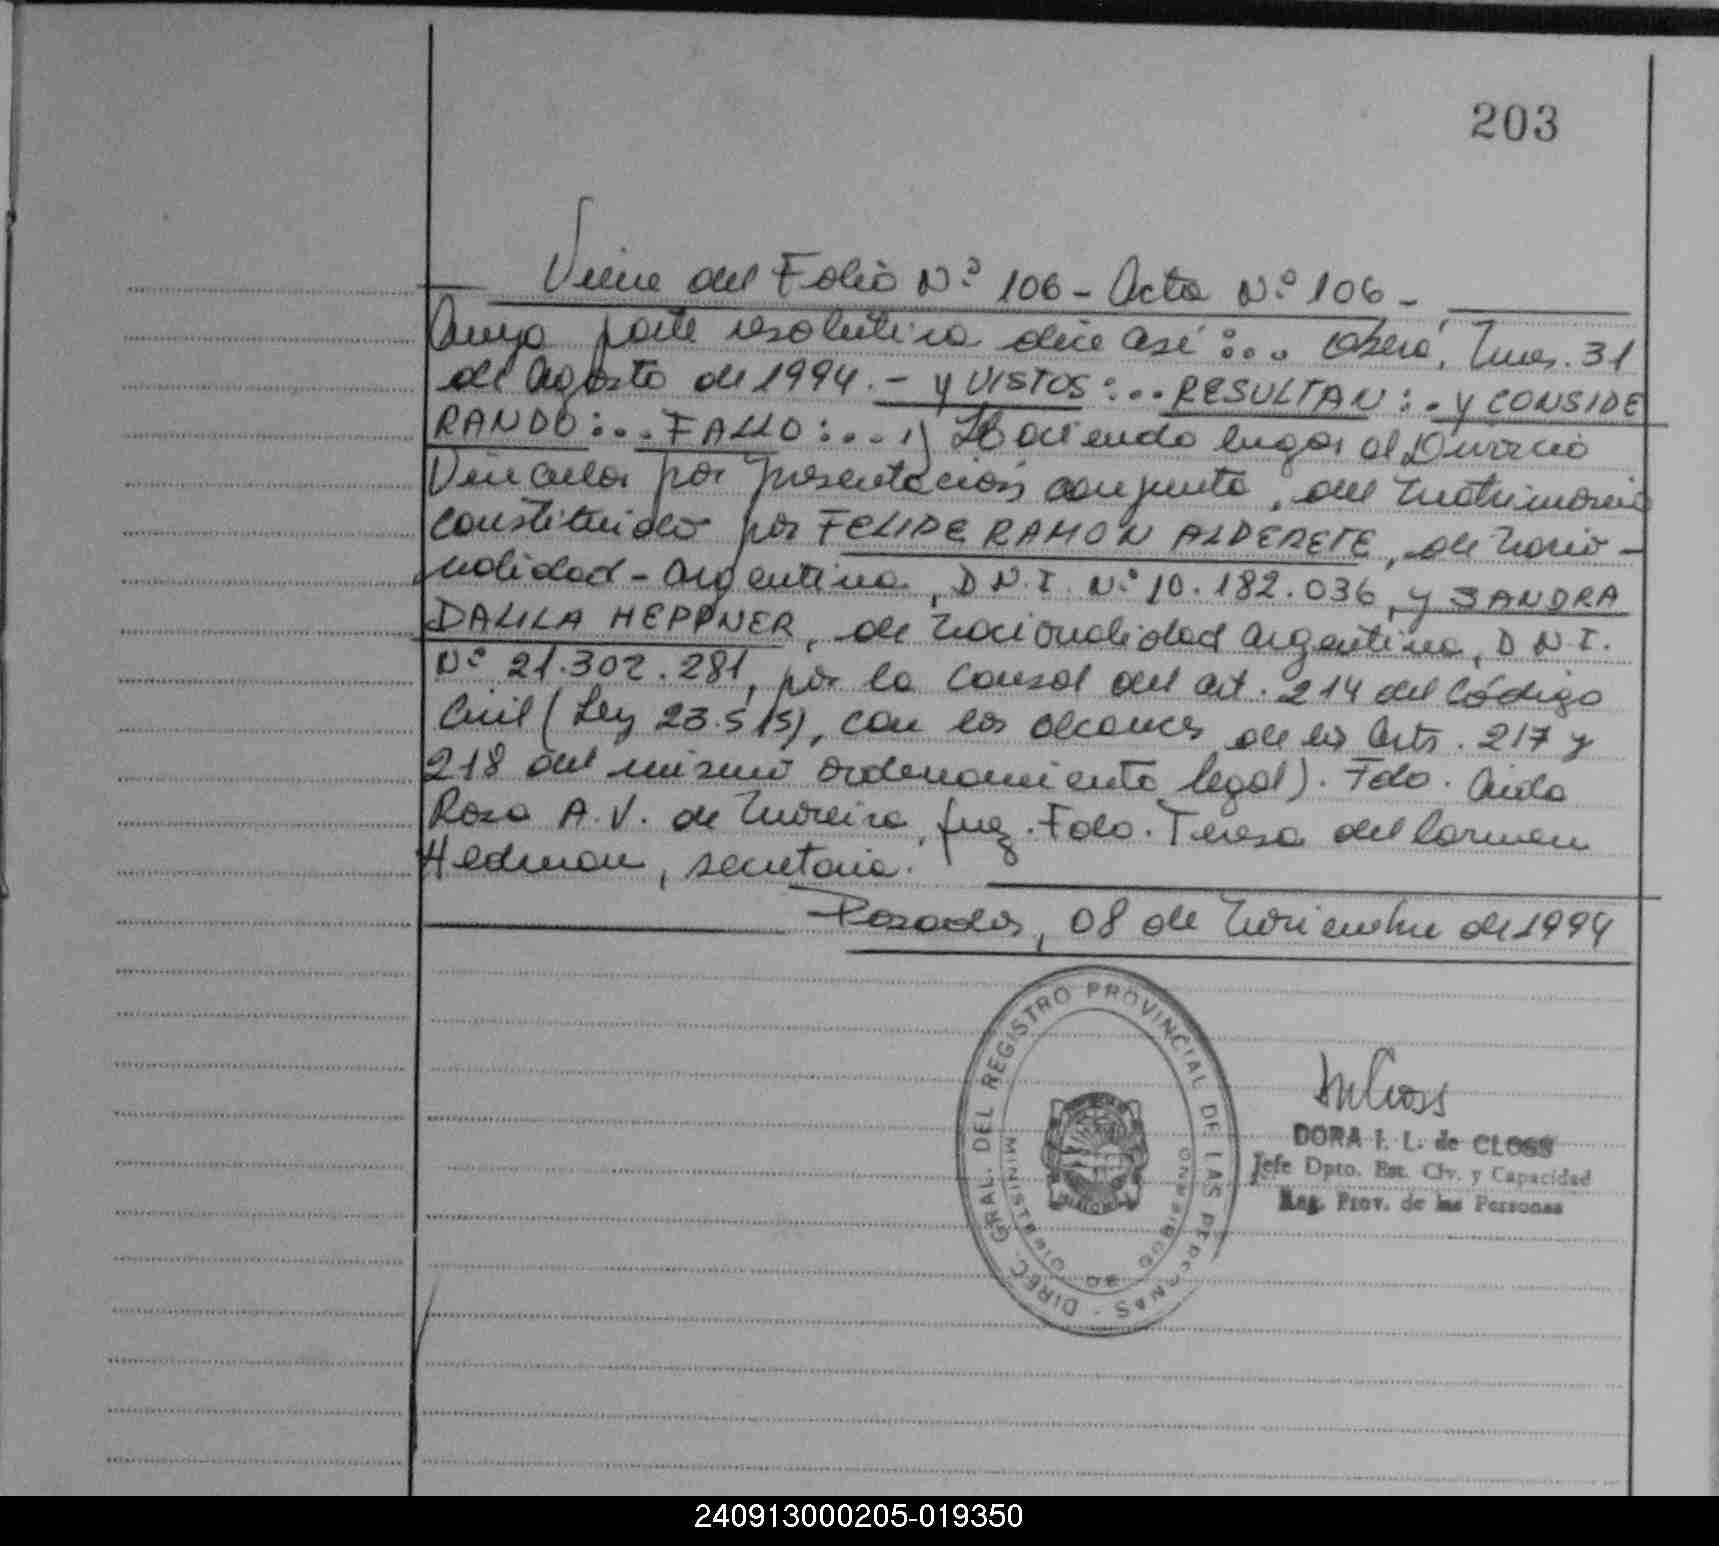 203
Viene del Folio Nº 106 - Acta Nº 106 -
Cuya parte resolutiva dice así:... Oberá, Mnes. 31
de Agosto de 1994. - Y VISTOS:.. RESULTAN:. Y CONSIDE
RANDO:... FALLO:... 1) Haciendo lugar al Divorcio
Vincular por presentación conjunta, del matrimonio
constituido por FELIPE RAMON ALDERETE, de nacio-
nalidad - Argentina, D.N.I. Nº 10.182.036, y SANDRA
DALILA HEPPNER, de nacionalidad argentina, D.N.I.
Nº 21.302.281, por la causal del art. 214 del Código
Civil (Ley 23.515), con los alcances de los Arts. 217 y
218 del mismo ordenamiento legal). Fdo. Aida
Rosa A.V. de Moreira, Juez. Fdo. Teresa del Carmen
Hedman, secretaria.
Posadas, 08 de Noviembre de 1994
DIREC. GRAL. DEL REGISTRO PROVINCIAL DE LAS PERSONAS -
MINISTERIO DE GOBIERNO
DORA I. L. de CLOSS
Jefe Dpto. Est. Civ. y Capacidad
Reg. Prov. de las Personas
240913000205-019350